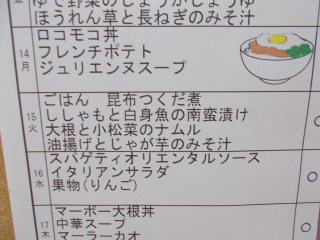 ゆで野菜のしょうがじょうゆ
ほうれん草と長ねぎのみそ汁
14 月
ロコモコ丼
フレンチポテト
ジュリエンヌスープ
15 火
ごはん 昆布つくだ煮
ししゃもと白身魚の南蛮漬け
大根と小松菜のナムル
油揚げとじゃが芋のみそ汁
○
16 水
スパゲティオリエンタルソース
イタリアンサラダ
果物(りんご)
○
17 木
マーボー大根丼
中華スープ
マーラーカオ
○